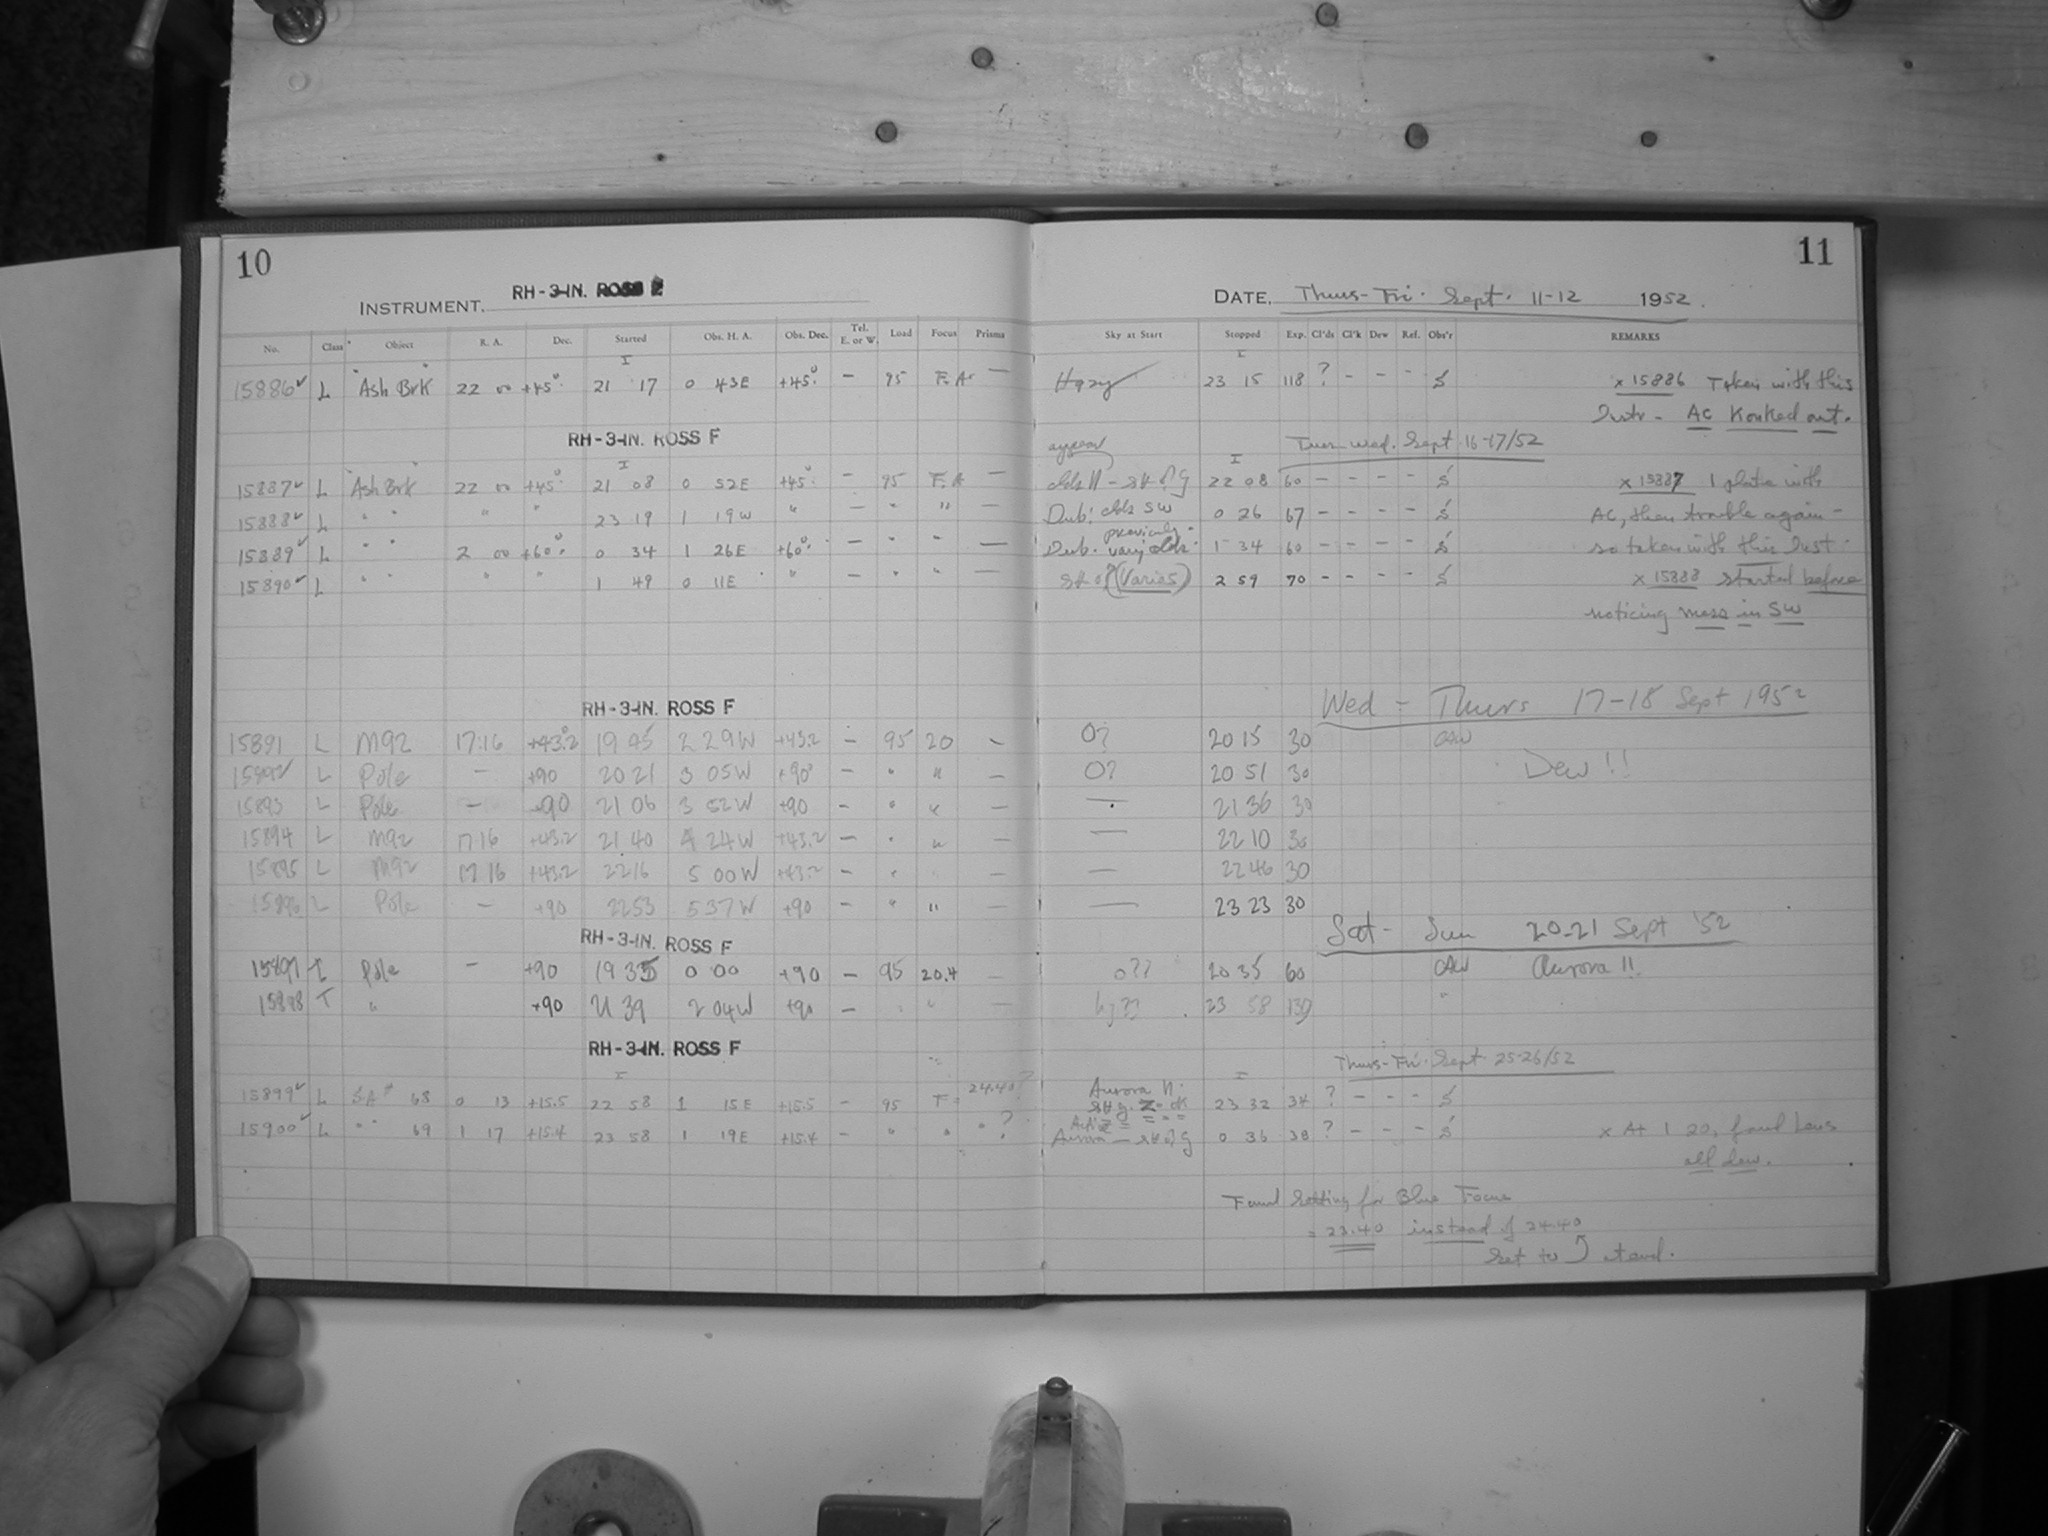 10
INSTRUMENT. RH-3-IN. ROSS
No. Class Object R. A. Dec. Started Obs. H. A. Obs. Dec. Tel. E. or W. Load Focus Prisms
15886 L "Ash Brk" 22 00 +45° 21 17 0 43E +45° - 95 F.A. -
RH-3-IN. ROSS F
15887 L "Ash Brk" 22 00 +45° 21 08 0 52E +45° - 95 F.A -
15888 L " " " " 23 19 1 19W " - " " -
15889 L " " 2 00 +60° 0 34 1 26E +60° - " " -
15890 L " " " " 1 49 0 11E " - " " -
RH-3-IN. ROSS F
15891 L M92 17:16 +43.2 19 45 2 29W +43.2 - 95 20 -
15892 L Pole - +90 20 21 3 05W +90° - " " -
15893 L Pole - +90 21 06 3 52W +90 - " " -
15894 L M92 17 16 +43.2 21 40 4 24W +43.2 - " " -
15895 L M92 17 16 +43.2 22 16 5 00W +43.2 - " -
15896 L Pole - +90 22 53 5 37W +90 - " " -
RH-3-IN. ROSS F
15897 I Pole - +90 19 35 0 00 +90 - 95 20.4 -
15898 I " +90 21 39 2 04W +90 - " " -
RH-3-IN. ROSS F
24.40?
15899 L SA# 68 0 13 +15.5 22 58 1 15E +15.5 - 95 F=
15900 L " " 69 1 17 +15.4 23 58 1 19E +15.4 - " " " ?
11
DATE, Thurs-Fri. Sept. 11-12 1952.
Sky at Start Stopped Exp. Cl'ds Cl'k Dew Ref. Obs'r REMARKS
Hazy 23 15 118 ? - - - S x 15886 Taken with this
Instr - AC Konked out.
Tues-Wed. Sept 16-17/52
22 08 60 - - - - S x 15887 1 plate with
Dub. clds SW 0 26 67 - - - - S AC, then trouble again -
previously
Dub. vary clds. 1 34 60 - - - - S so taken with this Inst.
(Varies) 2 59 70 - - - - S x 15888 Started before
noticing mess in SW
Wed - Thurs 17-18 Sept 1952
0? 20 15 30 OAW
0? 20 51 30 Dew!!
- 21 36 30
- 22 10 30
- 22 46 30
- 23 23 30
Sat - Sun 20-21 Sept '52
0?? 20 35 60 OAW Aurora!!
23 58 139 "
Thurs-Fri. Sept 25-26/52
Aurora N.
23 32 34 ? - - - S
Aurora 0 36 38 ? - - - S x At 1 20, found Lens
all dew.
Found Setting for Blue Focus
= 23.40 instead of 24.40
Set to